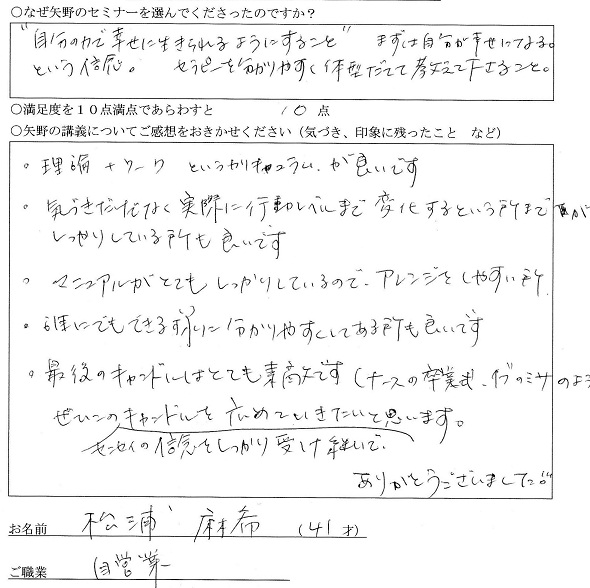 ○なぜ矢野のセミナーを選んでくださったのですか？
"自分の力で幸せに生きられるようにすること" まずは自分が幸せになる。
という信念。 セラピーを分かりやすく体型だてて教えて下さること。
○満足度を１０点満点であらわすと 10 点
○矢野の講義についてご感想をおきかせください（気づき、印象に残ったこと など）
・理論＋ワーク というカリキュラム が良いです
・気づきだけでなく実際に行動レベルまで変化するという所まで が
しっかりしている所も良いです
・マニュアルがとてもしっかりしているので、アレンジをしやすい所
・誰にでもできるように分かりやすくしてある所も良いです
・最後のキャンドルはとても素敵です（ナースの卒業式、イブのミサのよう
ぜひこのキャンドルを広めていきたいと思います。
センセイの信念をしっかり受け継いで、
ありがとうございました。
お名前 松浦 麻希 （41才）
ご職業 自営業